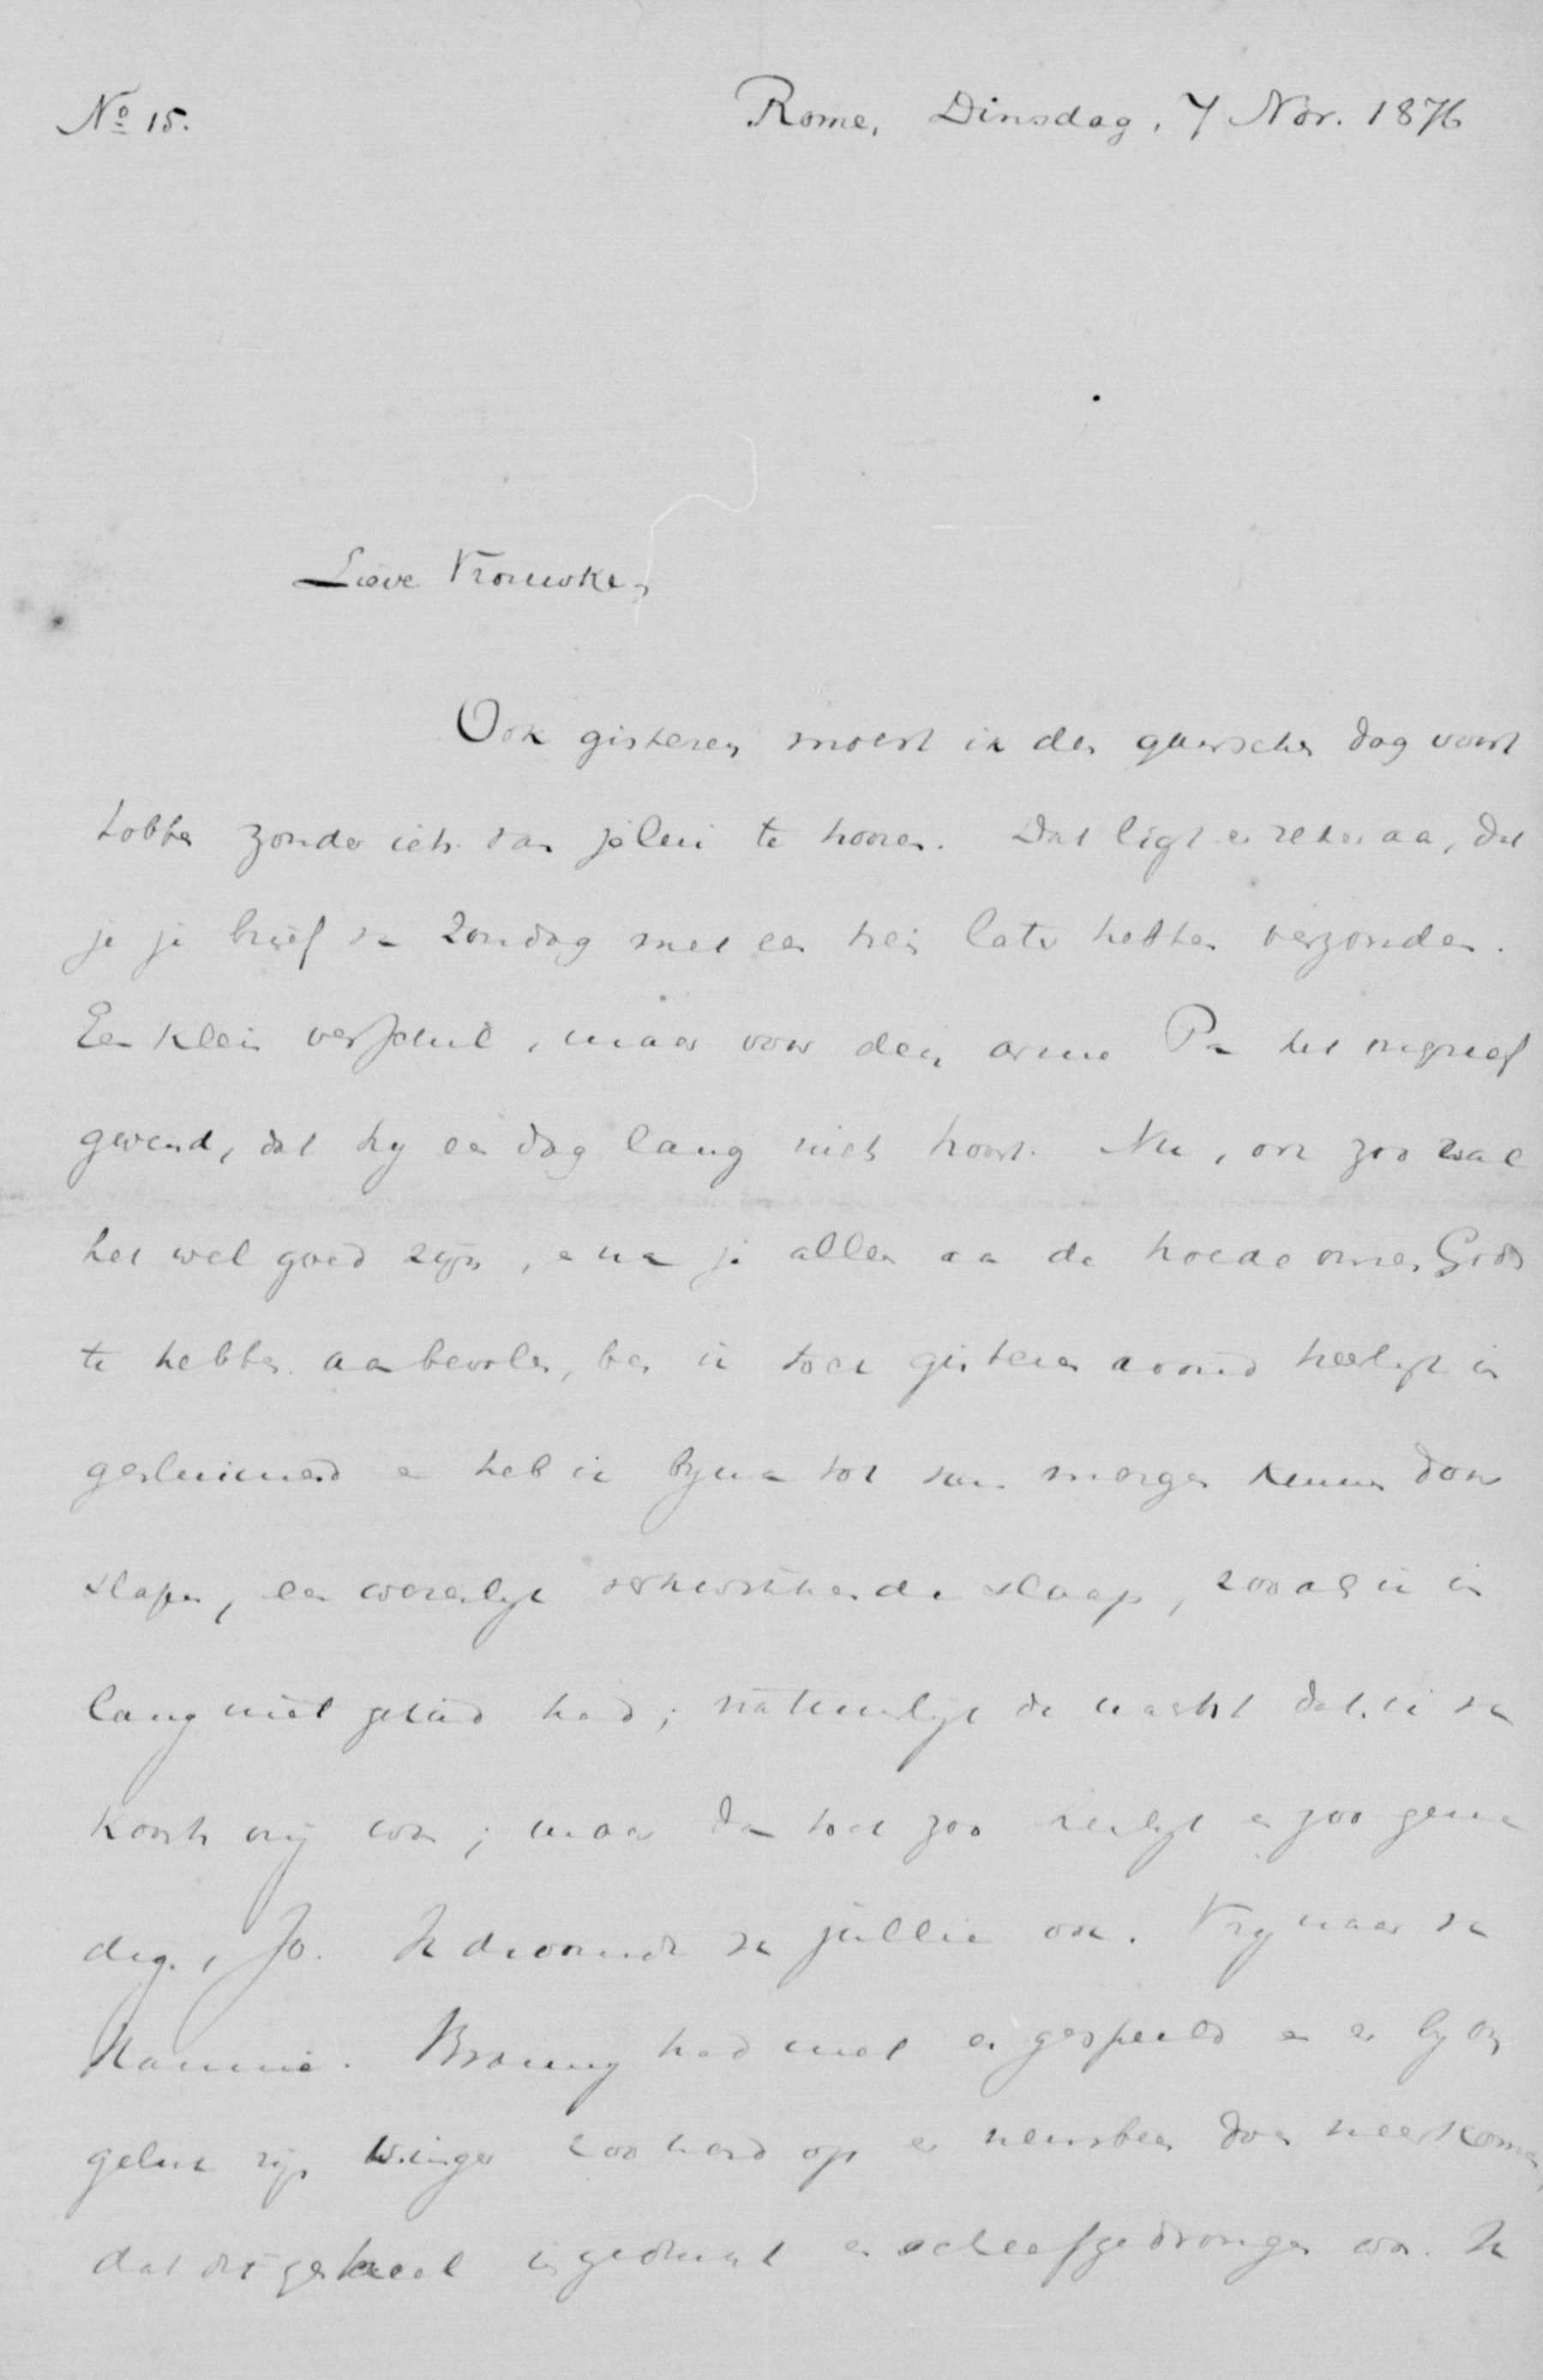 No 15.
Rome, Dinsdag, 7 Nov. 1876
Lieve Vrouwke,
Ook gisteren moest ik den ganschen dag voort
tobben zonder iets van jelui te hooren. Dat ligt er zeker aan, dat
je je brief van Zondag met een trein later hebben verzonden.
Een klein verschil, maar voor den armen Pa het ongerief
gevend, dat hy een dag lang niets hoort. Nu, ook zoo zal
het wel goed zijn, en na je allen aan de hoede onzes Gods
te hebben aanbevolen, ben ik toch gisteren avond heerlijk in
gesluimerd en heb ik byna tot van morgen kunnen door
slapen, een werkelijk verkwikkende slaap, zooals ik in
lang niet gehad had; natuurlijk de nacht dat ik van
koorts vrij was; maar dan toch zoo heerlijk en zoo gena
dig, Jo. Ik droomde van jullie ook. Vry naar van
Hannie. Bramy had met en gespeeld en er by on
geluk zijn vinger zoo hard op en neusbeen doen neerkomen,
dat dit geheel ingedeukt en scheefgedrongen was. Ik